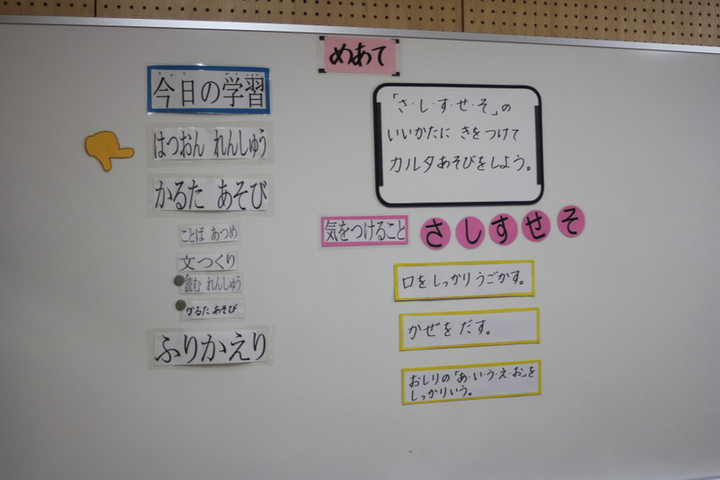 めあて
「さ・し・す・せ・そ」の
いいかたに きをつけて
カルタあそびをしよう。
今日の学習
はつおん れんしゅう
かるた あそび
ことば あつめ
文つくり
読む れんしゅう
かるた あそび
ふりかえり
気をつけること
さ し す せ そ
口をしっかりうごかす。
かぜを だす。
おしりの「あ・い・う・え・お」を
しっかりいう。